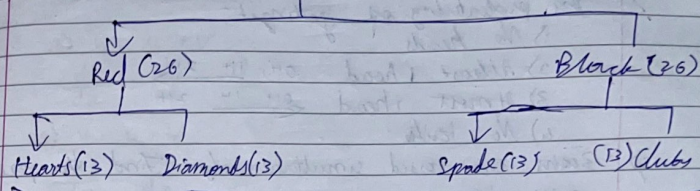 Red (26) Black (26)
Hearts (13) Diamonds (13) Spade (13) (13) Clubs